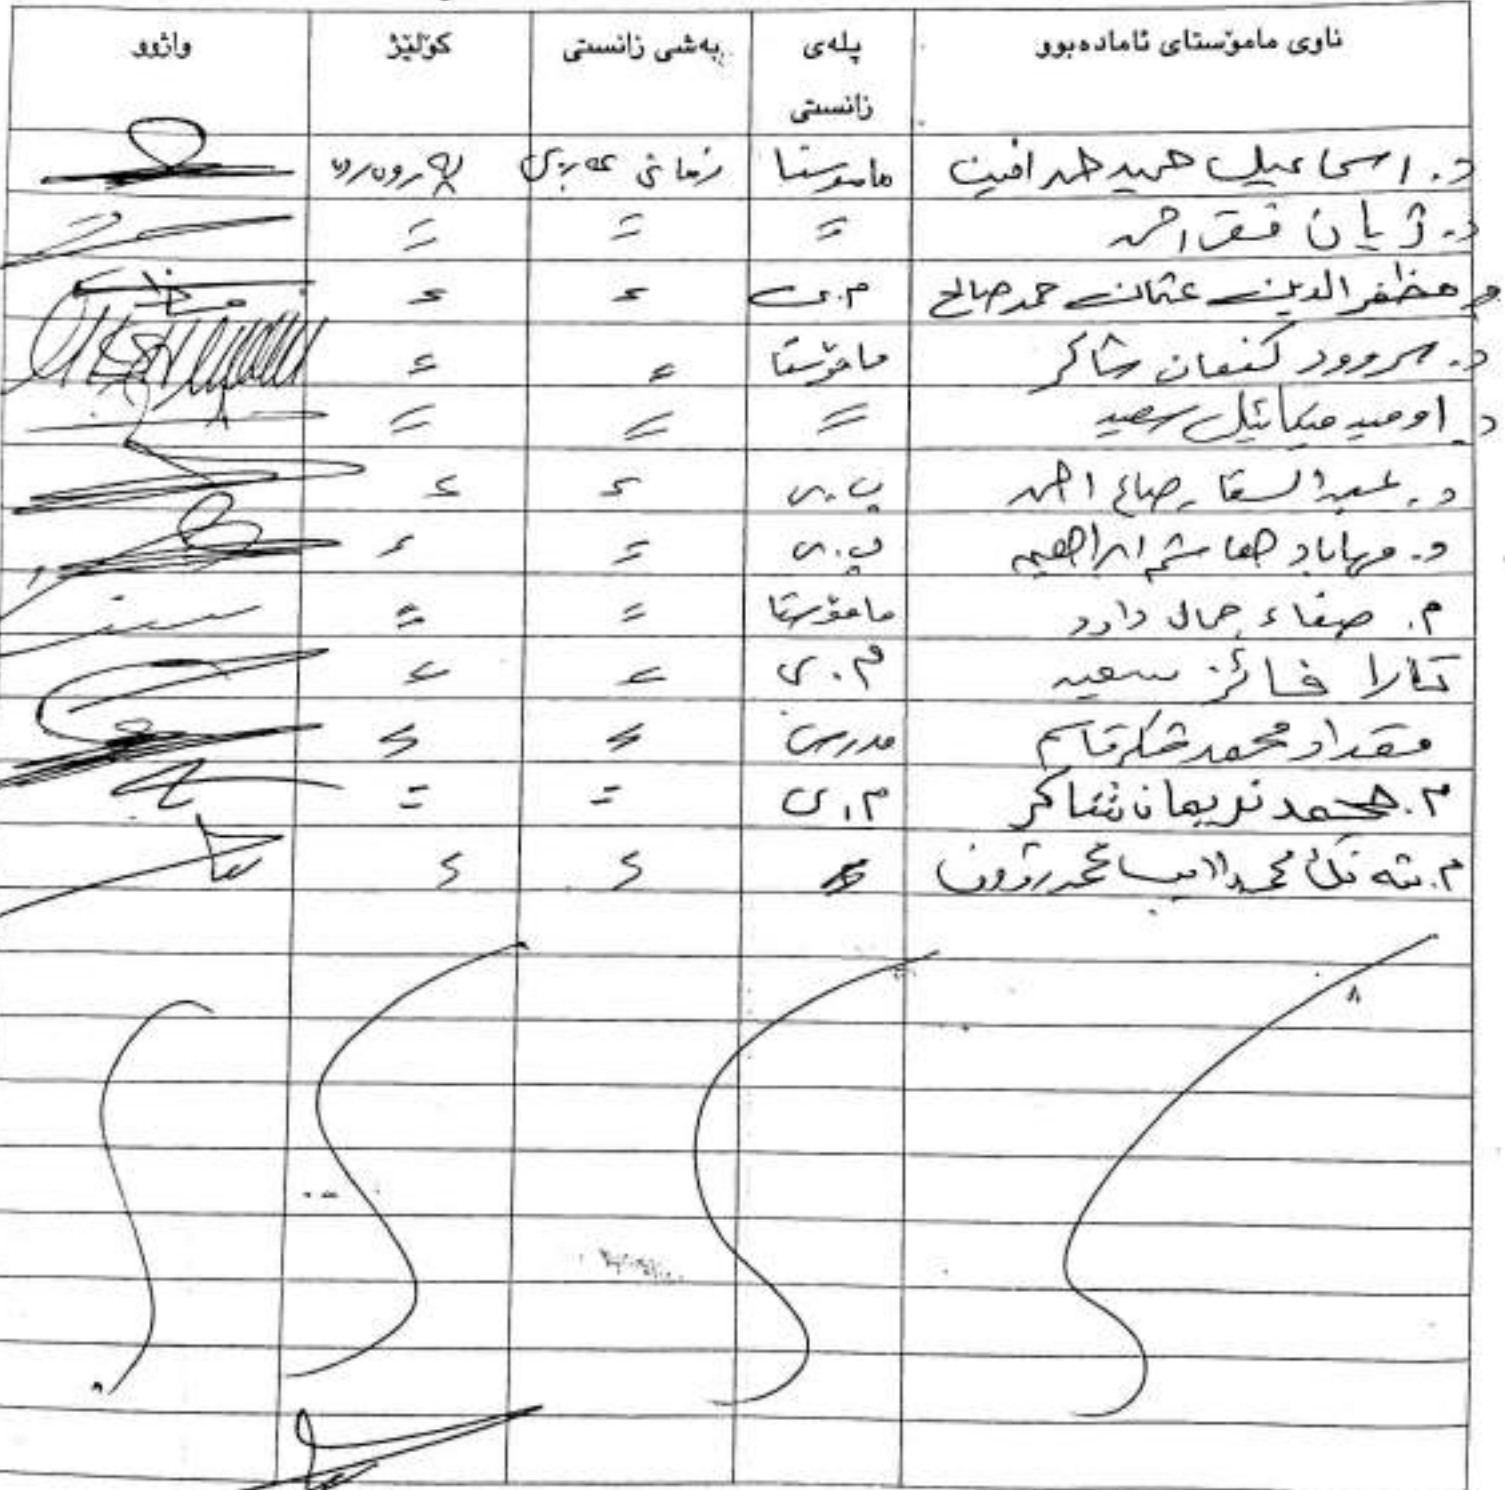 ناوی مامۆستای ئامادەبوو پلەی زانستی بەشی زانستی کۆلێژ واژوو
د. اسماعيل حميد حمدامين مامۆستا زمانی عەرەبی پەروەردە
د. ژیان فقێ احمد = = =
مظفرالدين عثمان حمدصالح م.ی = =
د. سروود كنعان شاكر مامۆستا = =
د. اوميد ميكائيل سعيد = = =
د. عبدالستار صالح احمد پ.ی = =
د. مهاباد هاشم ابراهيم پ.ی = =
م. صفاء جمال داود مامۆستا = =
تارا فائز سعيد م.ی = =
مقداد محمد شكر قاسم مدرس = =
م. محمد نريمان شاكر م.ی = =
م. محمد = =